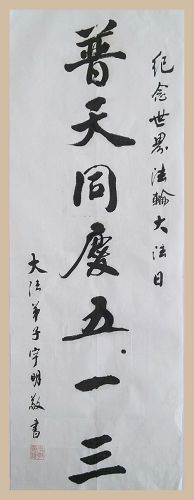 纪念世界法輪大法日
普天同慶五.一三
大法弟子宇明敬書